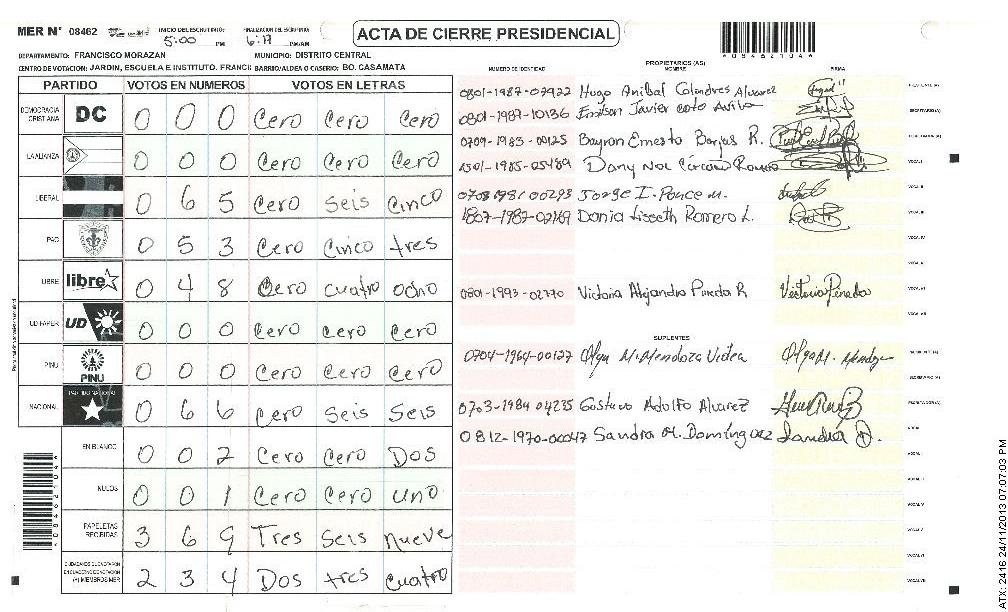 MER N° 08462 INICIO DEL ESCRUTINIO: 5:00 PM FINALIZACION DEL ESCRUTINIO: 6:17 PM/AM
ACTA DE CIERRE PRESIDENCIAL
DEPARTAMENTO: FRANCISCO MORAZAN MUNICIPIO: DISTRITO CENTRAL
CENTRO DE VOTACION: JARDIN, ESCUELA E INSTITUTO. FRANCI: BARRIO/ALDEA O CASERIO: BO. CASAMATA
PARTIDO VOTOS EN NUMEROS VOTOS EN LETRAS
DEMOCRACIA CRISTIANA DC 0 0 0 Cero Cero Cero
LA ALIANZA 0 0 0 Cero Cero Cero
LIBERAL 0 6 5 Cero Seis Cinco
PAC 0 5 3 Cero Cinco tres
LIBRE libre 0 4 8 Cero cuatro ocho
UD FAPER UD 0 0 0 Cero Cero Cero
PINU PINU 0 0 0 Cero Cero Cero
NACIONAL PARTIDO NACIONAL 0 6 6 Cero Seis Seis
EN BLANCO 0 0 2 Cero Cero Dos
NULOS 0 0 1 Cero Cero uno
PAPELETAS RECIBIDAS 3 6 9 Tres Seis nueve
2 3 4 Dos tres cuatro
*08462104*
PROPIETARIOS (AS)
NUMERO DE IDENTIDAD NOMBRE FIRMA
0801-1987-07922 Hugo Anibal Colindres Alvarez
0801-1987-10136 Emilson Javier Coto Avila
0709-1983-00125 Bayron Ernesto Borjas R.
1501-1985-05489 Dany Noe Cárcamo Romero
0708 1981 00293 Jorge I. Ponce M.
1807-1987-02169 Dania Lisseth Romero L.
0801-1993-02770 Victoria Alejandra Pineda R Victoria Pineda
SUPLENTES
0704-1964-00127 Olga M. Mendoza Videa Olga M. Mendoza
0703-1984 04235 Gustavo Adolfo Alvarez
0812-1970-00047 Sandra M. Domínguez Sandra D.
*08462104*
ATX: 2416 24/11/2013 07:07:03 PM